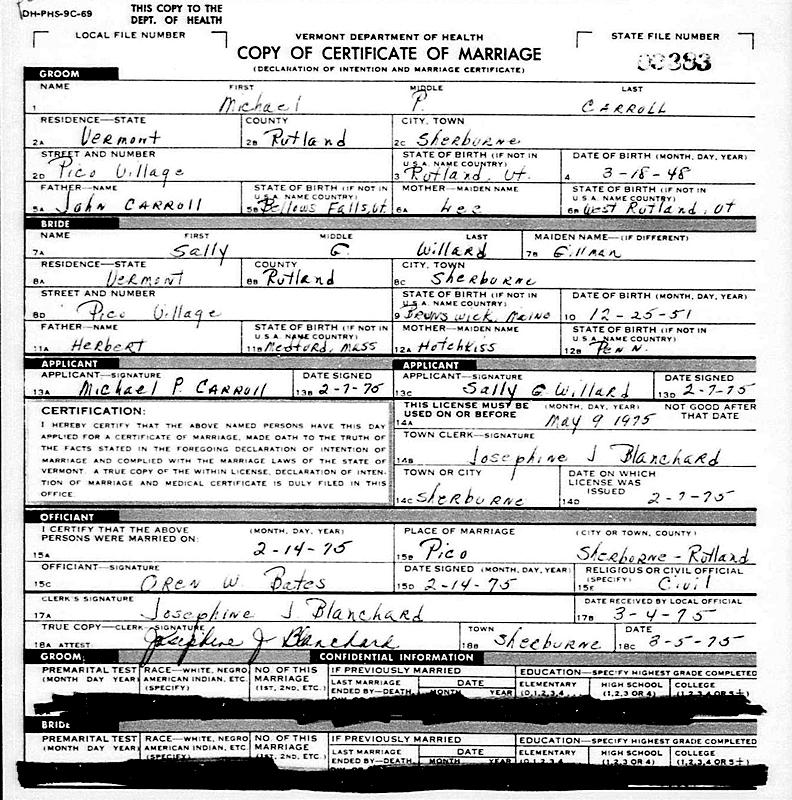 DH-PHS-9C-69
THIS COPY TO THE
DEPT. OF HEALTH
LOCAL FILE NUMBER
VERMONT DEPARTMENT OF HEALTH
STATE FILE NUMBER
COPY OF CERTIFICATE OF MARRIAGE
(DECLARATION OF INTENTION AND MARRIAGE CERTIFICATE)
383
GROOM
NAME FIRST MIDDLE LAST
1 Michael P. CARROLL
RESIDENCE—STATE COUNTY CITY, TOWN
2A Vermont 2B Rutland 2C Sherburne
STREET AND NUMBER STATE OF BIRTH (IF NOT IN U.S.A. NAME COUNTRY) DATE OF BIRTH (MONTH, DAY, YEAR)
2D Pico Village 3 Rutland, Vt. 4 3-18-48
FATHER—NAME STATE OF BIRTH (IF NOT IN U.S.A. NAME COUNTRY) MOTHER—MAIDEN NAME STATE OF BIRTH (IF NOT IN U.S.A. NAME COUNTRY)
5A John CARROLL 5B Bellows Falls, Vt. 6A Lee 6B West Rutland, Vt
BRIDE
NAME FIRST MIDDLE LAST MAIDEN NAME—(IF DIFFERENT)
7A Sally G. Willard 7B Gillman
RESIDENCE—STATE COUNTY CITY, TOWN
8A Vermont 8B Rutland 8C Sherburne
STREET AND NUMBER STATE OF BIRTH (IF NOT IN U.S.A. NAME COUNTRY) DATE OF BIRTH (MONTH, DAY, YEAR)
8D Pico Village 9 Brunswick, Maine 10 12-25-51
FATHER—NAME STATE OF BIRTH (IF NOT IN U.S.A. NAME COUNTRY) MOTHER—MAIDEN NAME STATE OF BIRTH (IF NOT IN U.S.A. NAME COUNTRY)
11A Herbert 11B Medford, Mass 12A Hotchkiss 12B Penn.
APPLICANT APPLICANT
APPLICANT—SIGNATURE DATE SIGNED APPLICANT—SIGNATURE DATE SIGNED
13A Michael P. CARROLL 13B 2-7-75 13C Sally G. Willard 13D 2-7-75
CERTIFICATION:
I HEREBY CERTIFY THAT THE ABOVE NAMED PERSONS HAVE THIS DAY
APPLIED FOR A CERTIFICATE OF MARRIAGE, MADE OATH TO THE TRUTH OF
THE FACTS STATED IN THE FOREGOING DECLARATION OF INTENTION OF
MARRIAGE AND COMPLIED WITH THE MARRIAGE LAWS OF THE STATE OF
VERMONT. A TRUE COPY OF THE WITHIN LICENSE, DECLARATION OF INTEN-
TION OF MARRIAGE AND MEDICAL CERTIFICATE IS DULY FILED IN THIS
OFFICE.
THIS LICENSE MUST BE USED ON OR BEFORE (MONTH, DAY, YEAR) NOT GOOD AFTER THAT DATE
14A May 9 1975
TOWN CLERK—SIGNATURE
14B Josephine J Blanchard
TOWN OR CITY DATE ON WHICH LICENSE WAS ISSUED
14C Sherburne 14D 2-7-75
OFFICIANT
I CERTIFY THAT THE ABOVE PERSONS WERE MARRIED ON: (MONTH, DAY, YEAR) PLACE OF MARRIAGE (CITY OR TOWN, COUNTY)
15A 2-14-75 15B Pico Sherborne-Rutland
OFFICIANT—SIGNATURE DATE SIGNED (MONTH, DAY, YEAR) RELIGIOUS OR CIVIL OFFICIAL (SPECIFY)
15C Oren W. Bates 15D 2-14-75 15E Civil
CLERK'S SIGNATURE DATE RECEIVED BY LOCAL OFFICIAL
17A Josephine J Blanchard 17B 3-4-75
TRUE COPY—CLERK—SIGNATURE TOWN DATE
18A ATTEST Josephine J Blanchard 18B Sherburne 18C 3-5-75
GROOM: CONFIDENTIAL INFORMATION
PREMARITAL TEST (MONTH DAY YEAR) RACE—WHITE, NEGRO AMERICAN INDIAN, ETC. (SPECIFY) NO. OF THIS MARRIAGE (1ST, 2ND, ETC.) IF PREVIOUSLY MARRIED EDUCATION—SPECIFY HIGHEST GRADE COMPLETED
LAST MARRIAGE ENDED BY—DEATH, DATE MONTH YEAR ELEMENTARY (0,1,2,3,4 HIGH SCHOOL (1,2,3 OR 4) COLLEGE (1,2,3,4 OR 5+)
BRIDE
PREMARITAL TEST (MONTH DAY YEAR) RACE—WHITE, NEGRO AMERICAN INDIAN, ETC. (SPECIFY) NO. OF THIS MARRIAGE (1ST, 2ND, ETC.) IF PREVIOUSLY MARRIED EDUCATION—SPECIFY HIGHEST GRADE COMPLETED
LAST MARRIAGE ENDED BY—DEATH, DATE MONTH YEAR ELEMENTARY (0,1,2,3,4 HIGH SCHOOL (1,2,3 OR 4) COLLEGE (1,2,3,4 OR 5+)